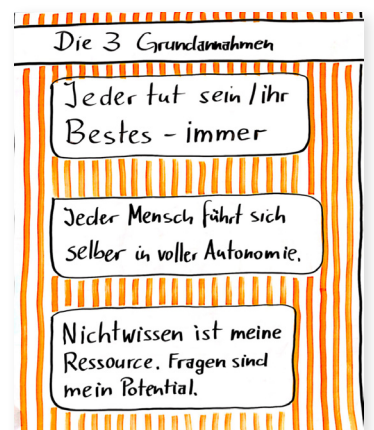 Die 3 Grundannahmen
Jeder tut sein / ihr
Bestes - immer
Jeder Mensch führt sich
selber in voller Autonomie.
Nichtwissen ist meine
Ressource. Fragen sind
mein Potential.